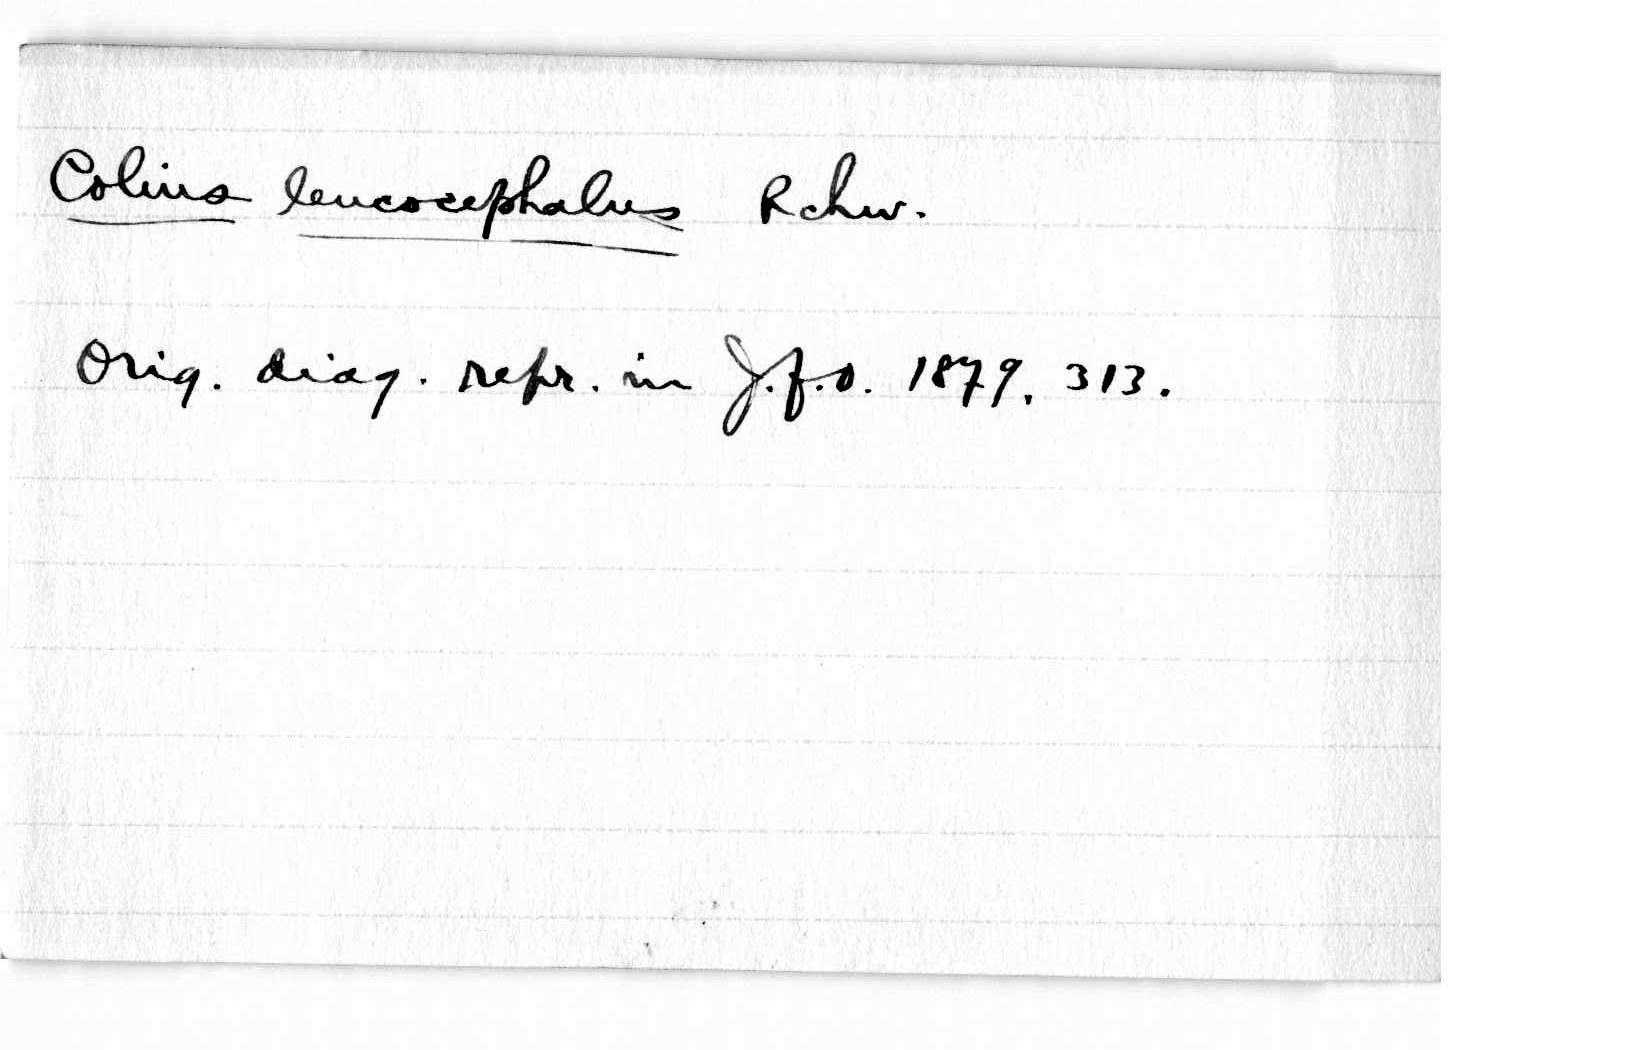 Colius leucocephalus Rchw.
Orig. diag. repr. in J.f.O. 1879, 313.